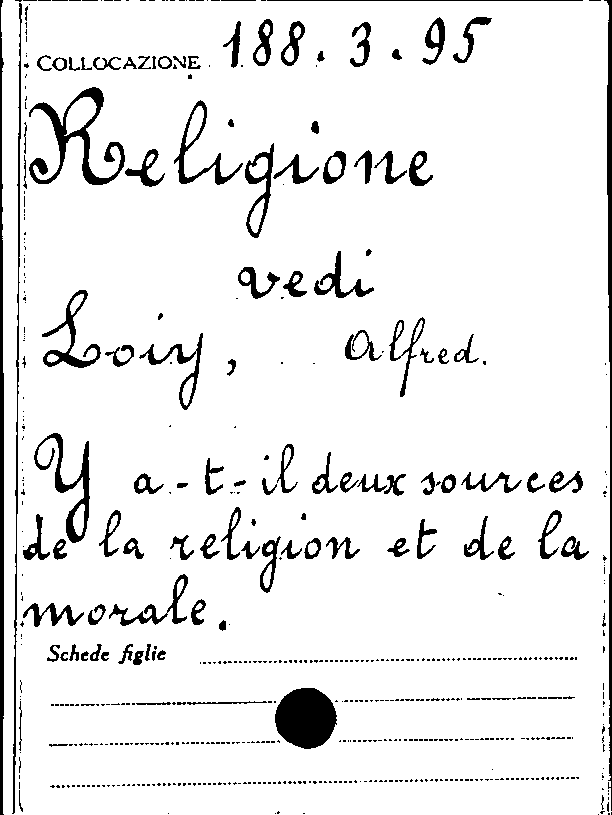 COLLOCAZIONE 188.3.95
Religione
vedi
Loiy, Alfred.
Y a-t-il deux sources
de la religion et de la
morale.
Schede figlie